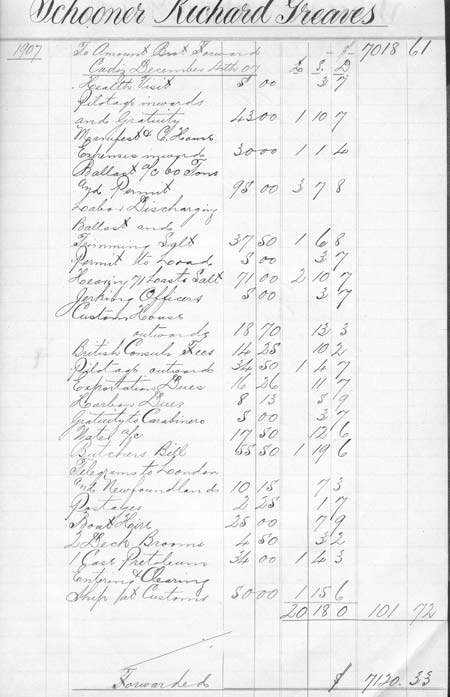 Schooner Richard Greaves
1907 To Amount Brot Forward $ 7018 61
Cadiz December 4th 07 £ S. D.
Health Visit 5 00 3 7
Pilotage inwards
and Gratuity 43 00 1 10 7
Manifest & C. House
Expenses inwards 30 00 1 1 4
Ballast a/c 60 Tons
and Permit 95 00 3 7 8
Labor Discharging
Ballast and
Trimming Salt 37 50 1 6 8
Permit to Load 5 00 3 7
Heaving 71 Lasts Salt 71 00 2 10 7
Jerking Officers 5 00 3 7
Custom House
outwards 18 70 13 3
British Consuls Fees 14 25 10 2
Pilotage outwards 34 50 1 4 7
Exportation Dues 16 26 11 7
Harbor Dues 8 13 5 9
Gratuity to Carabinero 5 00 3 7
Water a/c 17 50 12 6
Butchers Bill 55 50 1 19 6
Telegrams to London
and Newfoundland 10 15 7 3
Postages 2 25 1 7
Boat Hire 25 00 7 9
2 Deck Brooms 4 50 3 2
1 Case Pretoleum 34 00 1 4 3
Entering & Clearing
Ship at Customs 50 00 1 15 6
20 18 0 101 72
Forwarded $ 7120.33